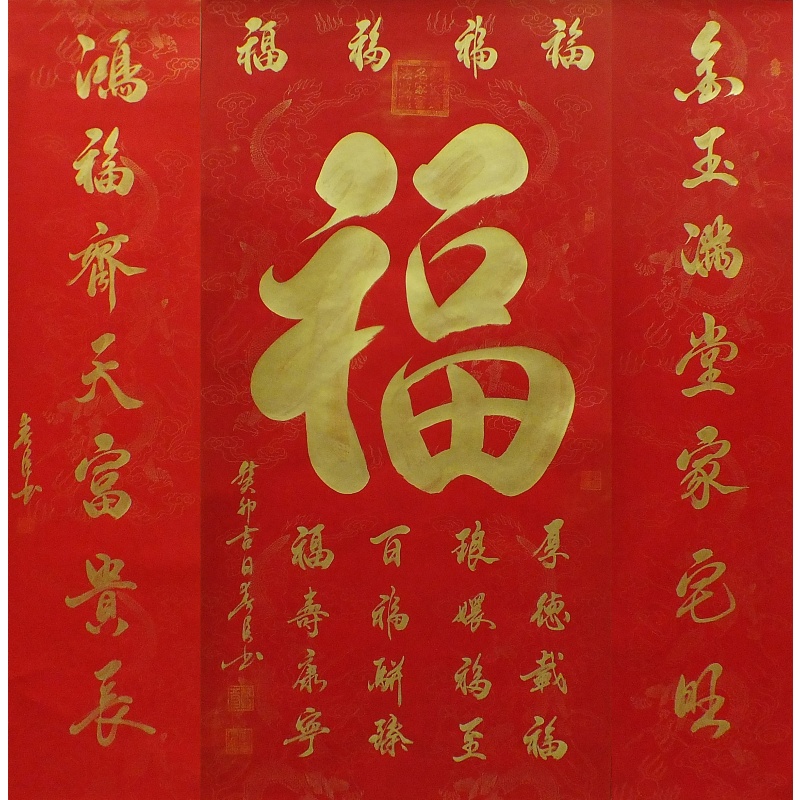 金玉滿堂家宅旺
福福福福
福
厚德載福
琅嬛福至
百福駢臻
福壽康寧
癸卯吉日
鴻福齊天富貴長